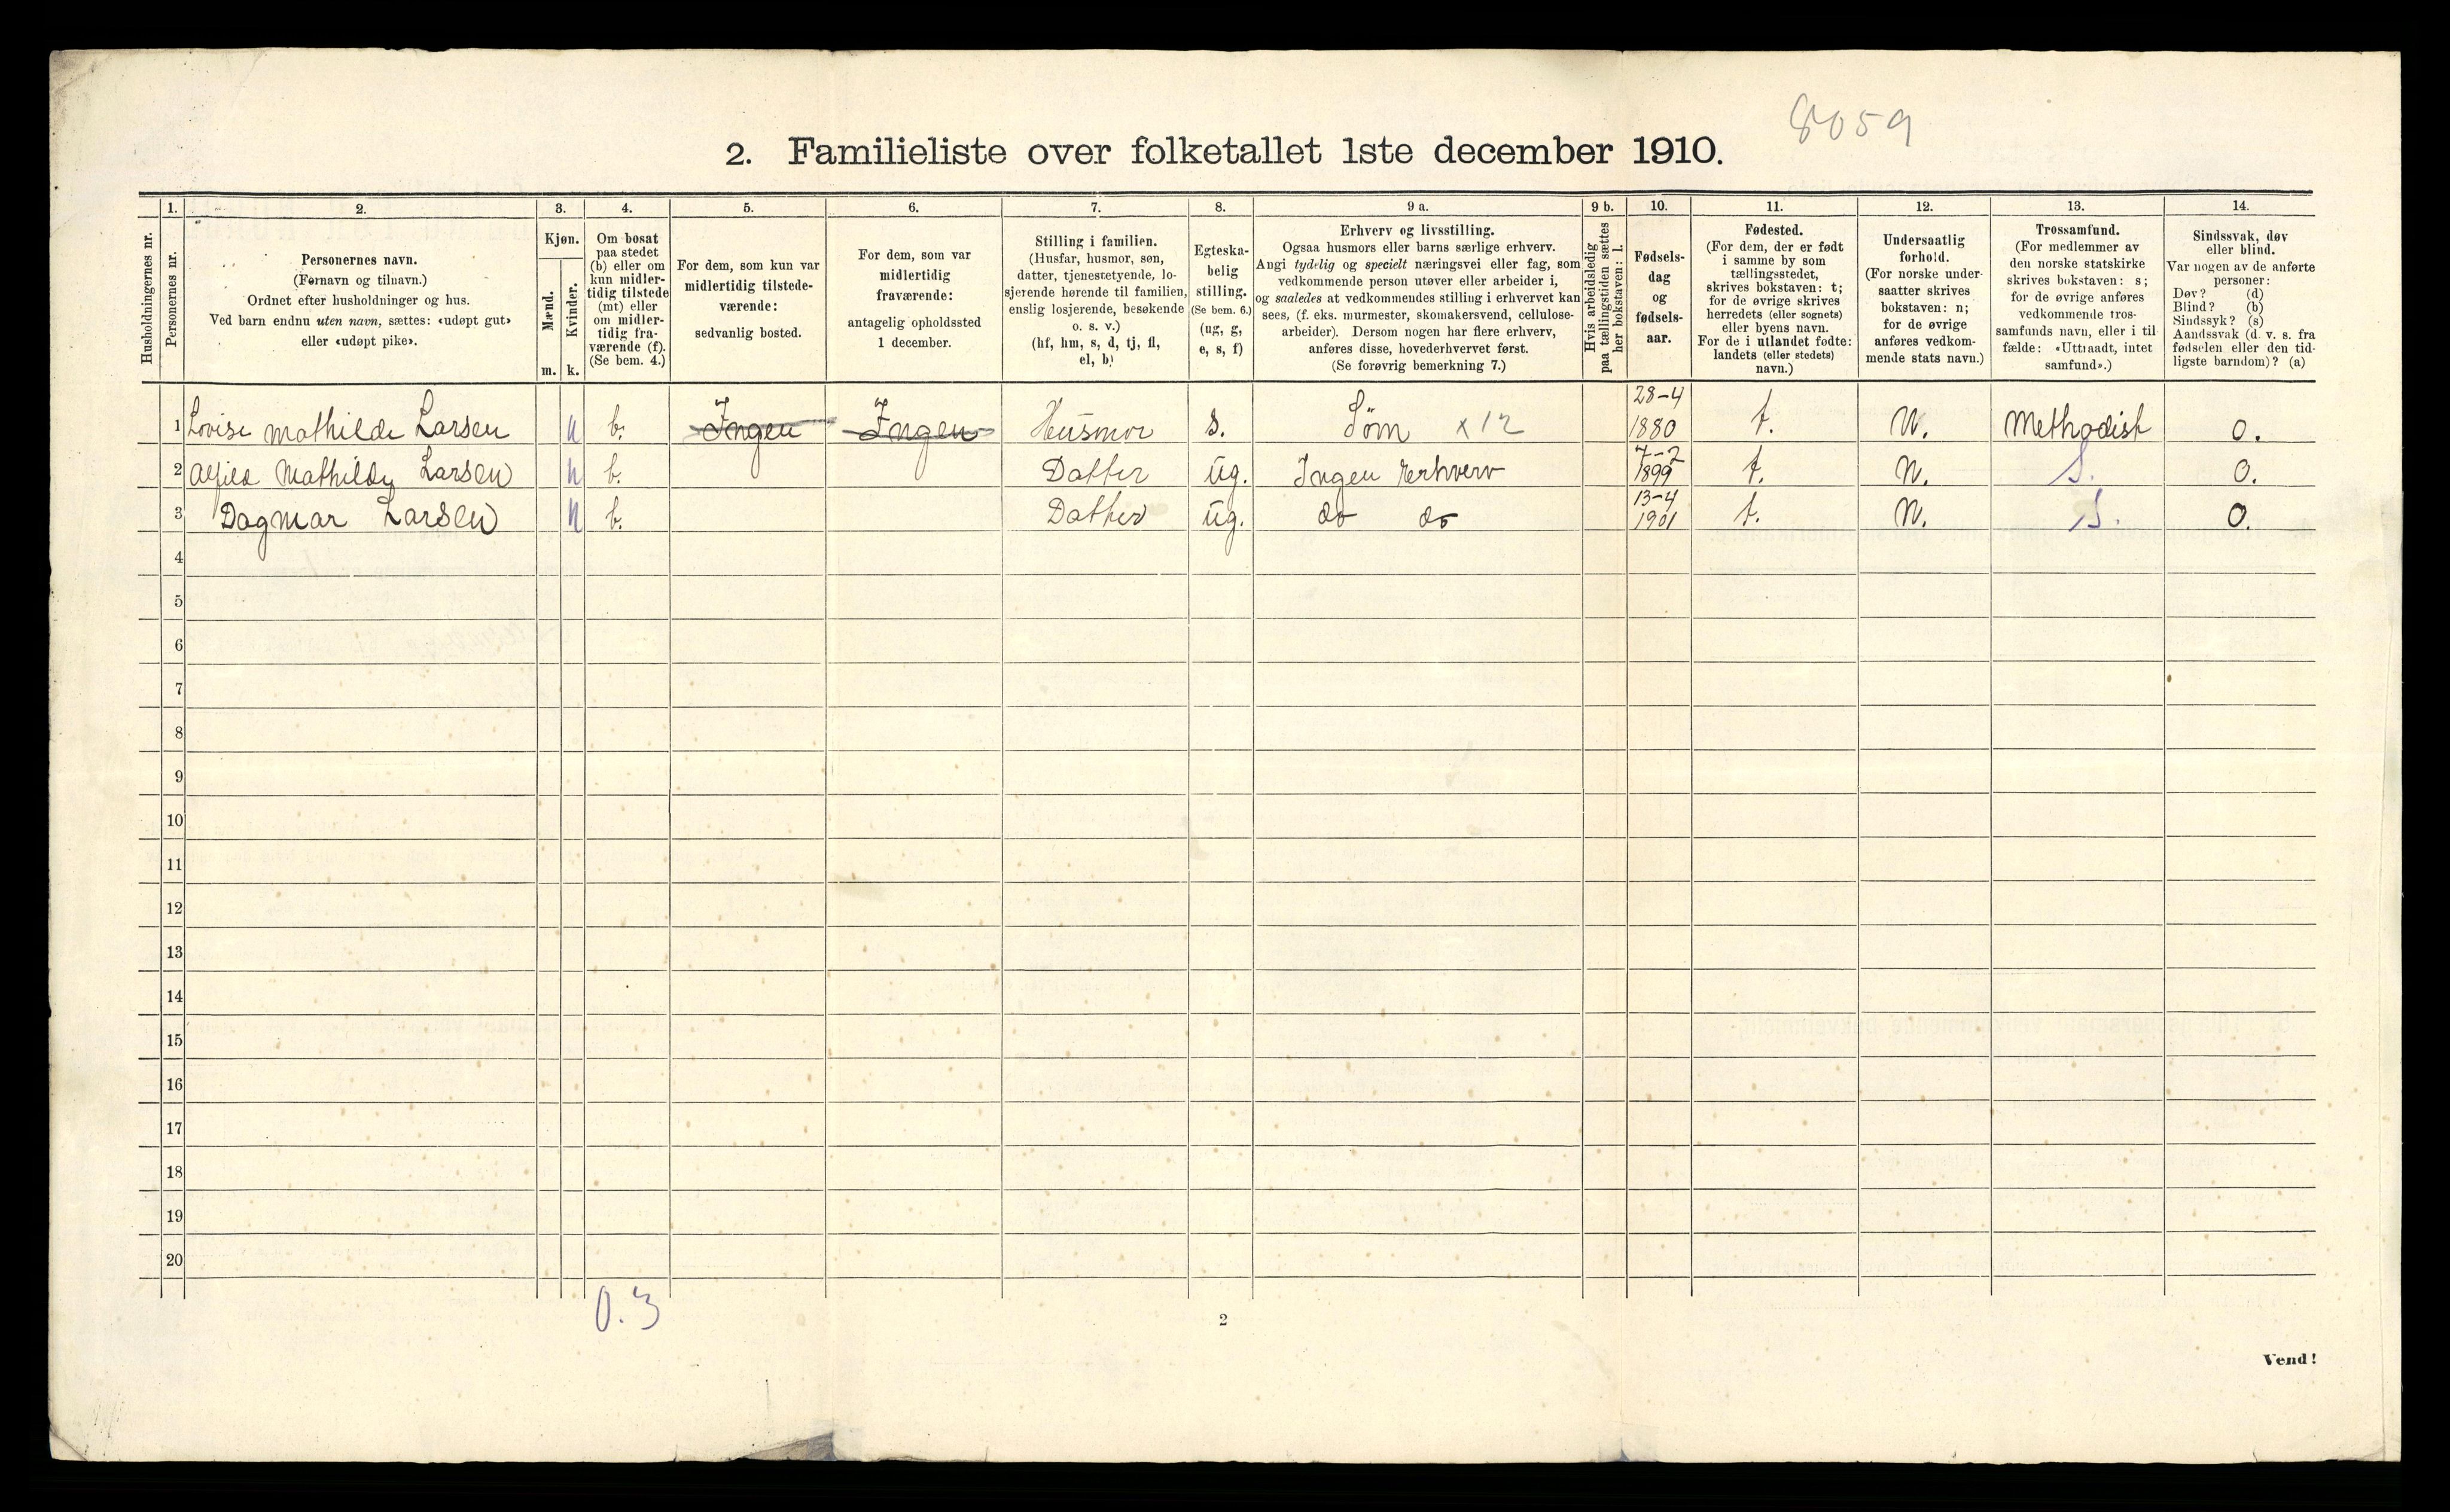 8059
2. Familieliste over folketallet 1ste december 1910.
Husholdningernes nr.
1.
Personernes nr.
2.
Personernes navn.
(Fornavn og tilnavn.)
Ordnet efter husholdninger og hus.
Ved barn endnu uten navn, sættes: «udøpt gut»
eller «udøpt pike».
3.
Kjøn.
Mænd.
Kvinder.
m. k.
4.
Om bosat
paa stedet
(b) eller om
kun midler-
tidig tilstede
(mt) eller
om midler-
tidig fra-
værende (f).
(Se bem. 4.)
5.
For dem, som kun var
midlertidig tilstede-
værende:
sedvanlig bosted.
6.
For dem, som var
midlertidig
fraværende:
antagelig opholdssted
1 december.
7.
Stilling i familien.
(Husfar, husmor, søn,
datter, tjenestetyende, lo-
sjerende hørende til familien,
enslig losjerende, besøkende
o. s. v.)
(hf, hm, s, d, tj, fl,
el, b)
8.
Egteska-
belig
stilling.
(Se bem. 6.)
(ug, g,
e, s, f)
9 a.
Erhverv og livsstilling.
Ogsaa husmors eller barns særlige erhverv.
Angi tydelig og specielt næringsvei eller fag, som
vedkommende person utøver eller arbeider i,
og saaledes at vedkommendes stilling i erhvervet kan
sees, (f. eks. murmester, skomakersvend, cellulose-
arbeider). Dersom nogen har flere erhverv,
anføres disse, hovederhvervet først.
(Se forøvrig bemerkning 7.)
9 b.
Hvis arbeidsledig
paa tællingstiden sættes
her bokstaven: l.
10.
Fødsels-
dag
og
fødsels-
aar.
11.
Fødested.
(For dem, der er født
i samme by som
tællingsstedet,
skrives bokstaven: t;
for de øvrige skrives
herredets (eller sognets)
eller byens navn.
For de i utlandet fødte:
landets (eller stedets)
navn.)
12.
Undersaatlig
forhold.
(For norske under-
saatter skrives
bokstaven: n;
for de øvrige
anføres vedkom-
mende stats navn.)
13.
Trossamfund.
(For medlemmer av
den norske statskirke
skrives bokstaven: s;
for de øvrige anføres
vedkommende tros-
samfunds navn, eller i til-
fælde: «Uttraadt, intet
samfund».)
14.
Sindssvak, døv
eller blind.
Var nogen av de anførte
personer:
Døv? (d)
Blind? (b)
Sindssyk? (s)
Aandssvak (d. v. s. fra
fødselen eller den tid-
ligste barndom)? (a)
1 Lovise Mathilde Larsen b. Ingen Ingen Husmor s. Søm x12 28-4 1880 t. N. Methodist 0.
2 Alfild Mathilde Larsen b. Datter ug. Ingen Erhverv 7-2 1899 t. N. S. 0.
3 Dagmar Larsen b. Datter ug. do do 13-4 1901 t. N. S. 0.
4
5
6
7
8
9
10
11
12
13
14
15
16
17
18
19
20
0.3
2
Vend!